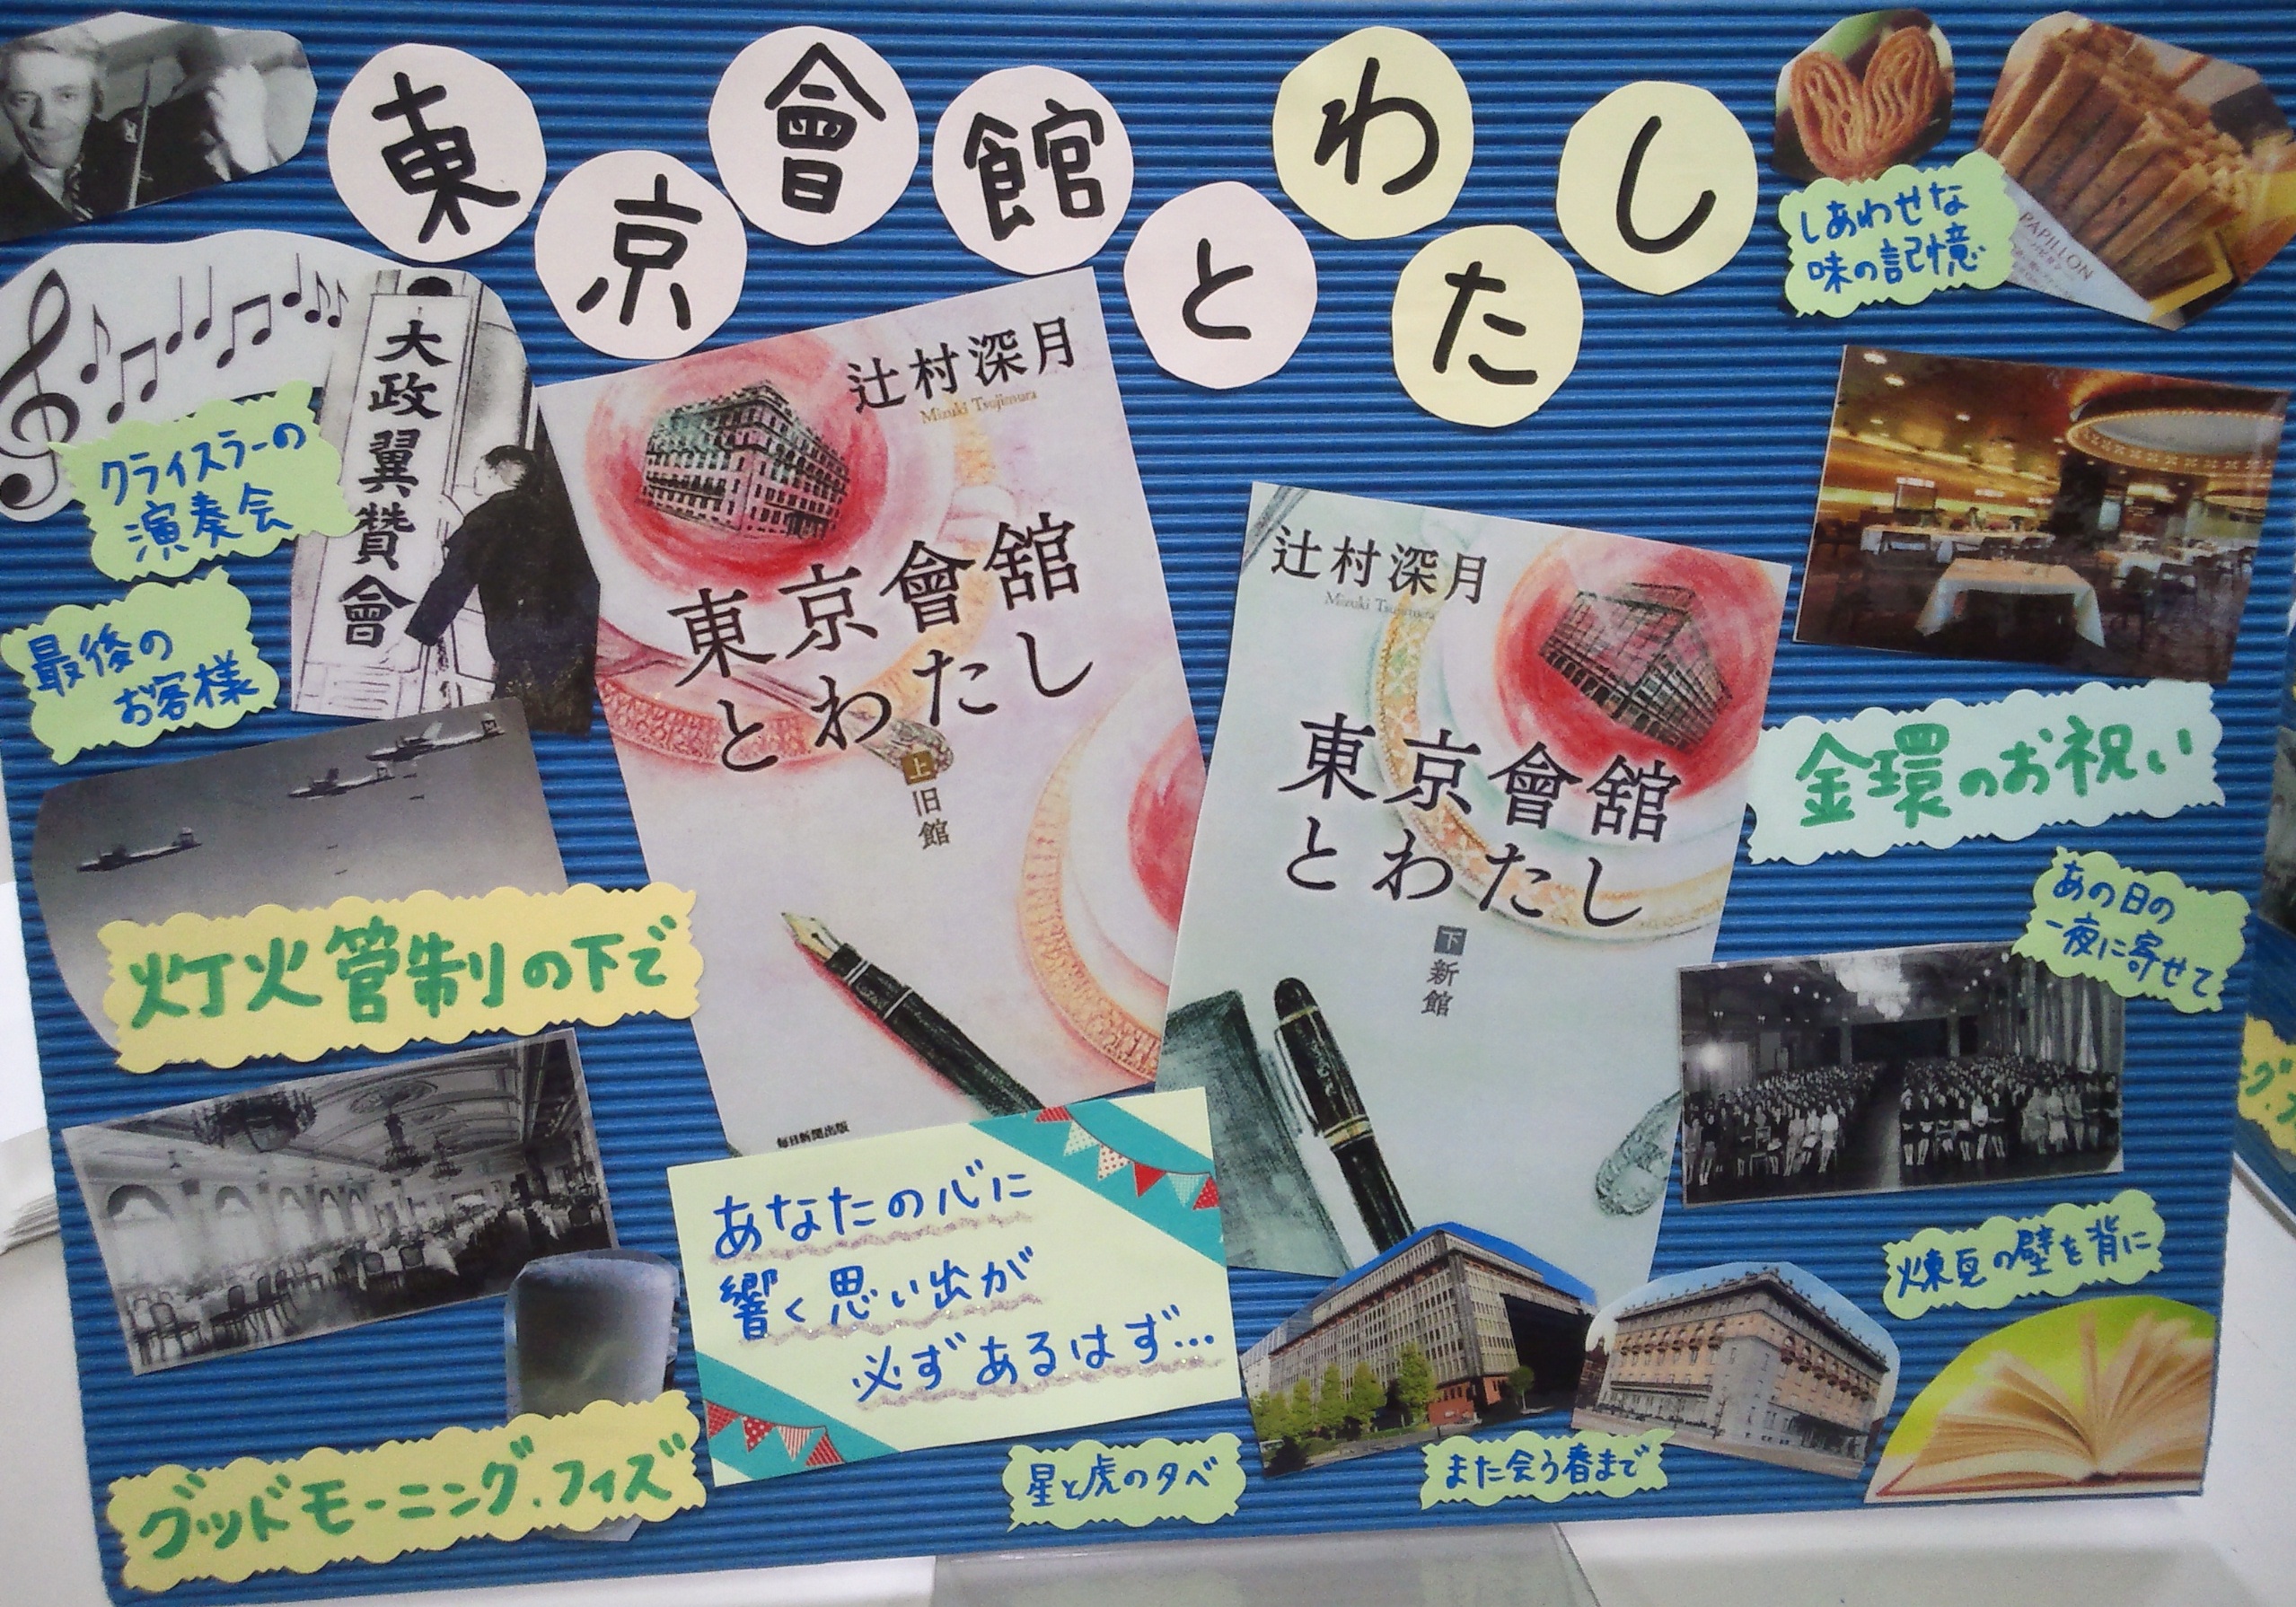 東京會館とわたし
しあわせな
味の記憶
PAPILLON
クライスラーの
演奏会
大政翼賛會
最後の
お客様
辻村深月
Mizuki Tsujimura
東京會舘
とわたし
上
旧館
毎日新聞出版
辻村深月
Mizuki Tsujimura
東京會舘
とわたし
下
新館
金環のお祝い
あの日の
一夜に寄せて
灯火管制の下で
あなたの心に
響く思い出が
必ずあるはず…
煉瓦の壁を背に
グッドモーニング・フィズ
星と虎の夕べ
また会う春まで